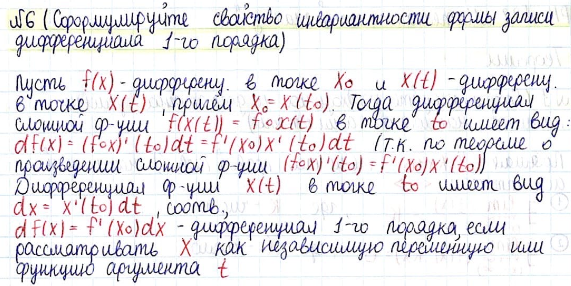 №6 (Сформулируйте свойство инвариантности формы записи
дифференциала 1-го порядка)
Пусть f(x) - дифференц. в точке x₀ и x(t) - дифференц.
в точке x(t), причём x₀ = x(t₀). Тогда дифференциал
сложной ф-ции f(x(t)) = f∘x(t) в точке t₀ имеет вид:
df(x) = (f∘x)'(t₀)dt = f'(x₀)x'(t₀)dt (т.к. по теореме о
произведении сложной ф-ции (f∘x)'(t₀) = f'(x₀)x'(t₀))
Дифференциал ф-ции x(t) в точке t₀ имеет вид
dx = x'(t₀)dt, соотв.,
df(x) = f'(x₀)dx - дифференциал 1-го порядка, если
рассматривать x как независимую переменную или
функцию аргумента t